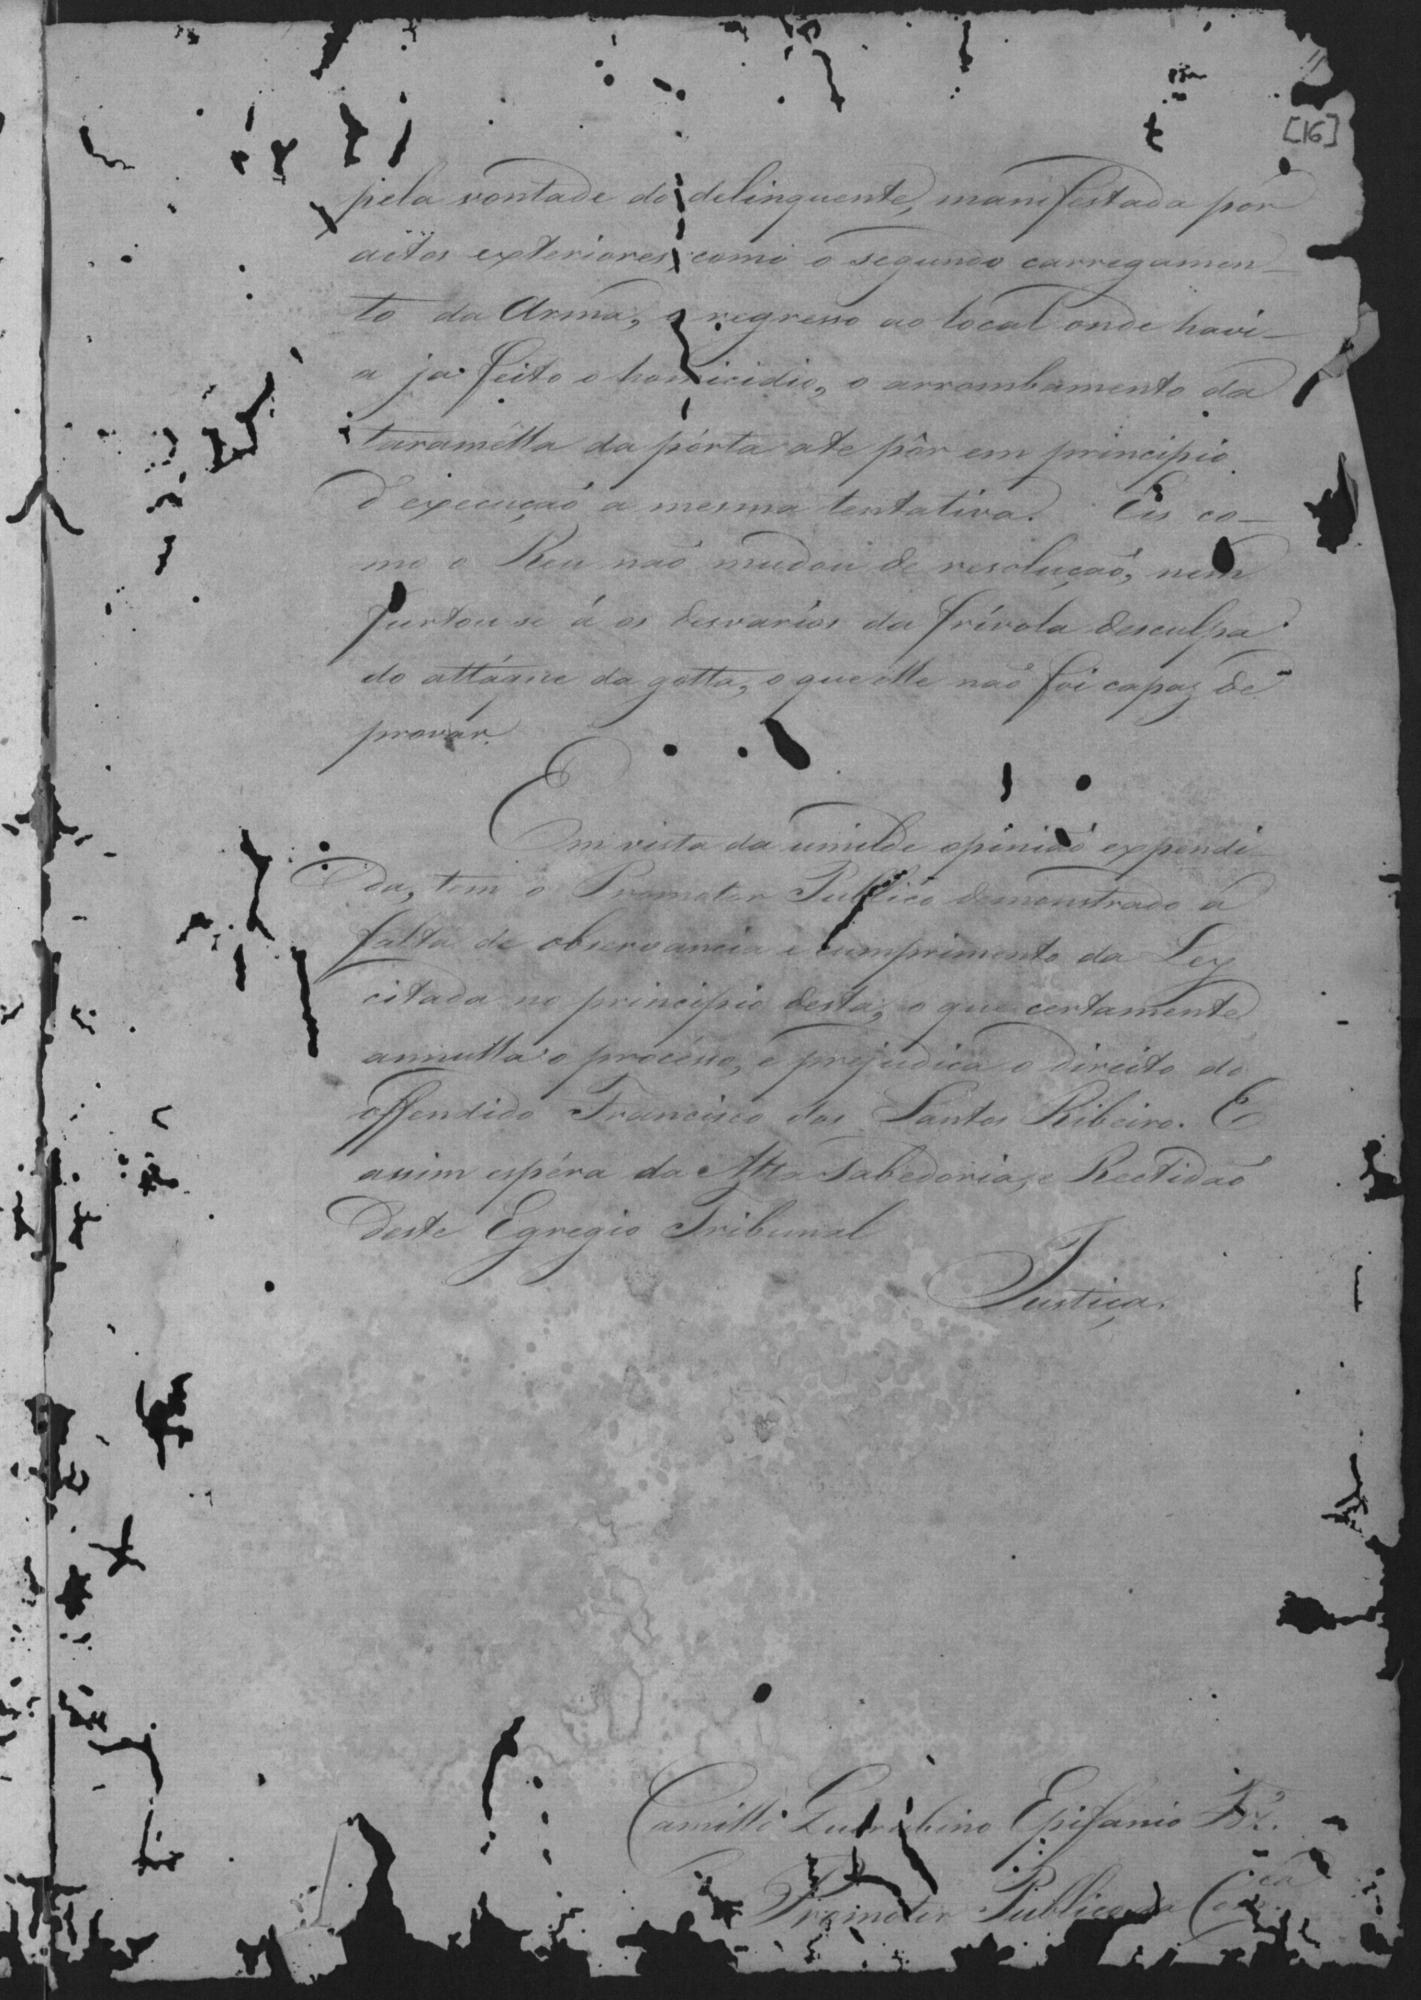 11
[16]
pela vontade do delinquente, manifestada por
actos exteriores, como o segundo carregamen-
to da Arma, o regresso ao local onde havi-
a ja feito o homicidio, o arrombamento da
taramélla da pórta ate pôr em principio
d'execuçaõ a mesma tentativa. Eis co-
mo o Reu naõ mudou de resoluçaõ, nem
furtou se á os desvarios da frívola desculpa
do attáque da gotta, o que elle naõ foi capaz de
provar.
Em vista da umilde opiniaõ expendi-
da, tem o Promotor Publico demonstrado a
falta de observancia e cumprimento da Ley
citada no principio desta; o que certamente
annulla o procésso, e prejudica o direito do
offendido Francisco dos Santos Ribeiro. E
assim espéra da Alta Sabedoria, e Rectidaõ
deste Egregio Tribunal
Justiça.
Camillo Epifanio
Promotor Publico da